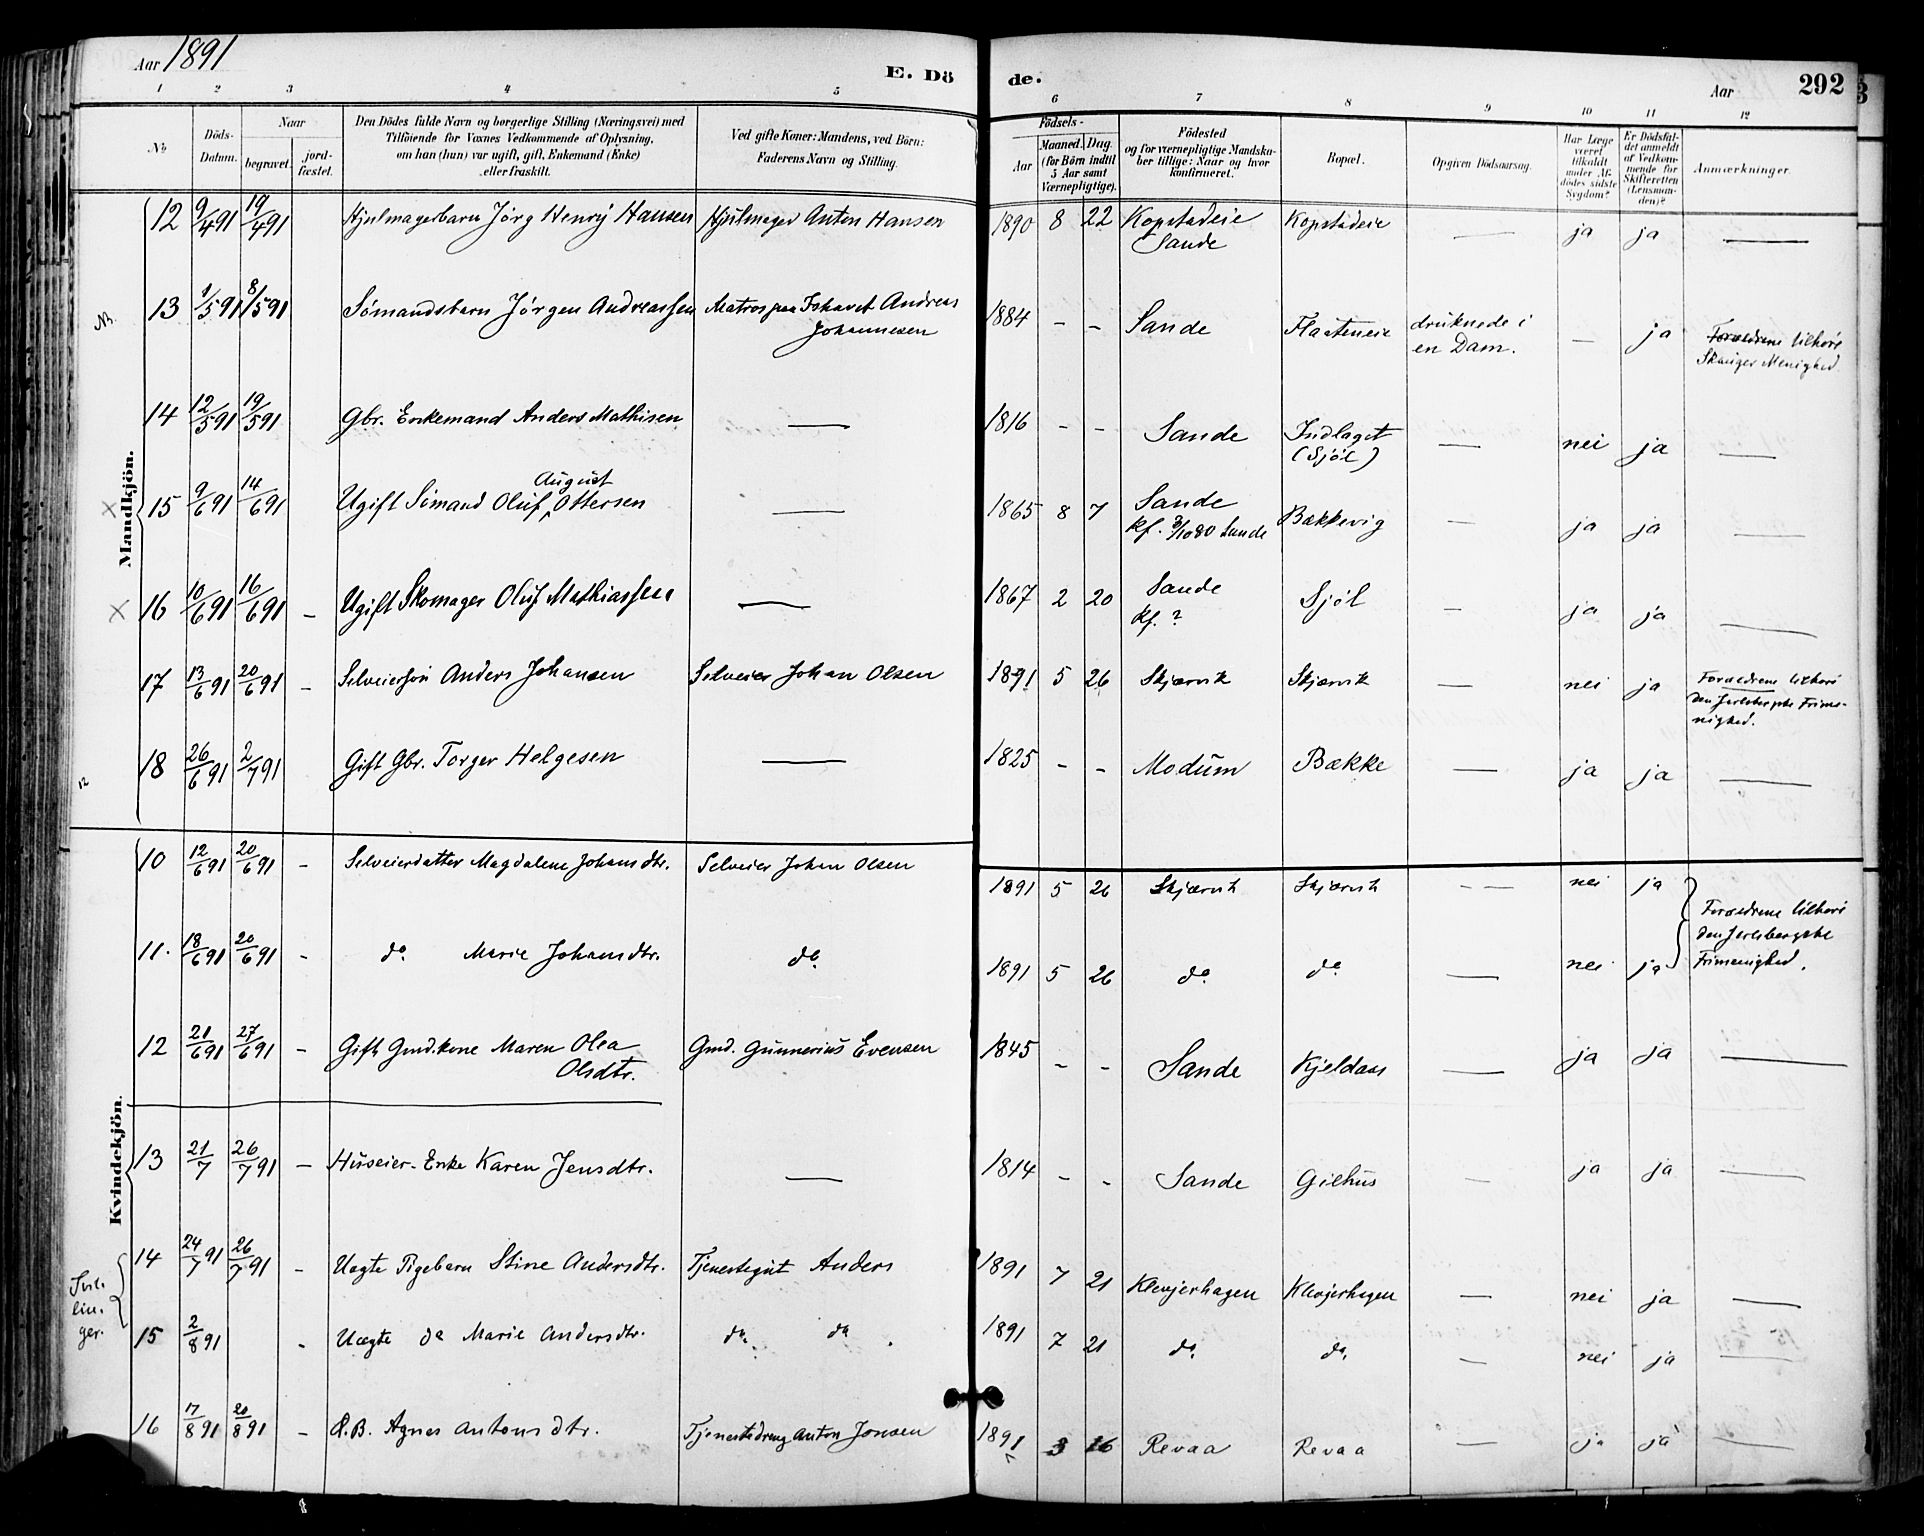 Aar 1891
E. Dö de.
Aar 292
1 2 3 4 5 6 7 8 9 10 11 12
No
Döds-Datum.
Naar
begravet.
jord-fæstet.
Den Dödes fulde Navn og borgerlige Stilling (Næringsvei) med
Tilföiende for Voxnes Vedkommende af Oplysning,
om han (hun) var ugift, gift, Enkemand (Enke)
eller fraskilt.
Ved gifte Koner: Mandens, ved Börn:
Faderens Navn og Stilling.
Födsels-
Aar
Maaned. Dag.
(for Börn indtil
5 Aar samt
Værnepligtige).
Födested
og for værnepligtige Mandska-
ber tillige: Naar og hvor
konfirmeret.
Bopæl.
Opgiven Dödsaarsag.
Har Læge
været
tilkaldt
under Af-
dödes sidste
Sygdom?
Er Dödsfal-
det anmeldt
af Vedkom-
mende for
Skifteretten
(Lensman-
den)?
Anmærkninger.
Mandkjön.
12 9/4 91 19/4 91 Hjulmagerbarn Jørg Henry Hansen Hjulmager Anton Hansen 1890 8 22 Kopstadeie Kopstadeie — ja ja —
Sande
13 1/5 91 8/5 91 Sømandsbarn Jørgen Andreassen Matros paa Ishavet Andreas 1884 - - Sande Flaateneie druknede i — ja Forældrene tilhøre
Johannesen en Dam. Skauger Menighed.
14 12/5 91 19/5 91 Gbr. Enkemand Anders Mathisen — 1816 - - Sande Indlaget — nei ja —
(Sjøl)
August
15 9/6 91 14/6 91 Ugift Sømand Oluf Ottersen — 1865 8 7 Sande Bækkevig — ja ja —
kf. 3/10 80 Sande
16 10/6 91 16/6 91 - Ugift Skomager Oluf Mathiassen — 1867 2 20 Sande Sjøl — ja ja —
kf. ?
17 13/6 91 20/6 91 - Selveiersøn Anders Johansen Selveier Johan Olsen 1891 5 26 Skjærvik Skjærvik nei ja Forældrene tilhøre
den Jarlsbergske Frime-
nighed.
18 26/6 91 2/7 91 Gift Gbr. Torger Helgesen — 1825 - - Modum Bække — ja ja —
Kvindekjön.
10 12/6 91 20/6 91 - Selveierdatter Magdalene Johansdtr. Selveier Johan Olsen 1891 5 26 Skjærvik Skjærvik — nei ja
Forældrene tilhøre
den Jarlsbergske
Frimenighed.
11. 18/6 91 20/6 91 - do. Marie Johansdtr. do. 1891 5 26 do. do. — nei ja
12 21/6 91 27/6 91 - Gift Gmd.kone Maren Olea Gmd. Gunnerius Evensen 1845 - - Sande Kjeldaas — ja ja —
Olsdtr.
13 21/7 26/7 91 — Huseier-Enke Karen Jensdtr. — 1814 - - Sande Gilhus — ja ja —
Tvil-
lin-
ger.
14 24/7 91 26/7 91 - Uægte Pigebarn Stine Andersdtr. Tjenestegut Anders 1891 7 21 Klevjerhagen Klevjerhagen — nei ja —
15 2/8 91 - Uægte do Marie Andersdtr. do. do. 1891 7 21 do. do. — nei ja —
16 17/8 91 20/8 91 - U.B. Agnes Antonsdtr. Tjenestedreng Anton Jonsen 1891 3 16 Revaa Revaa — ja ja —